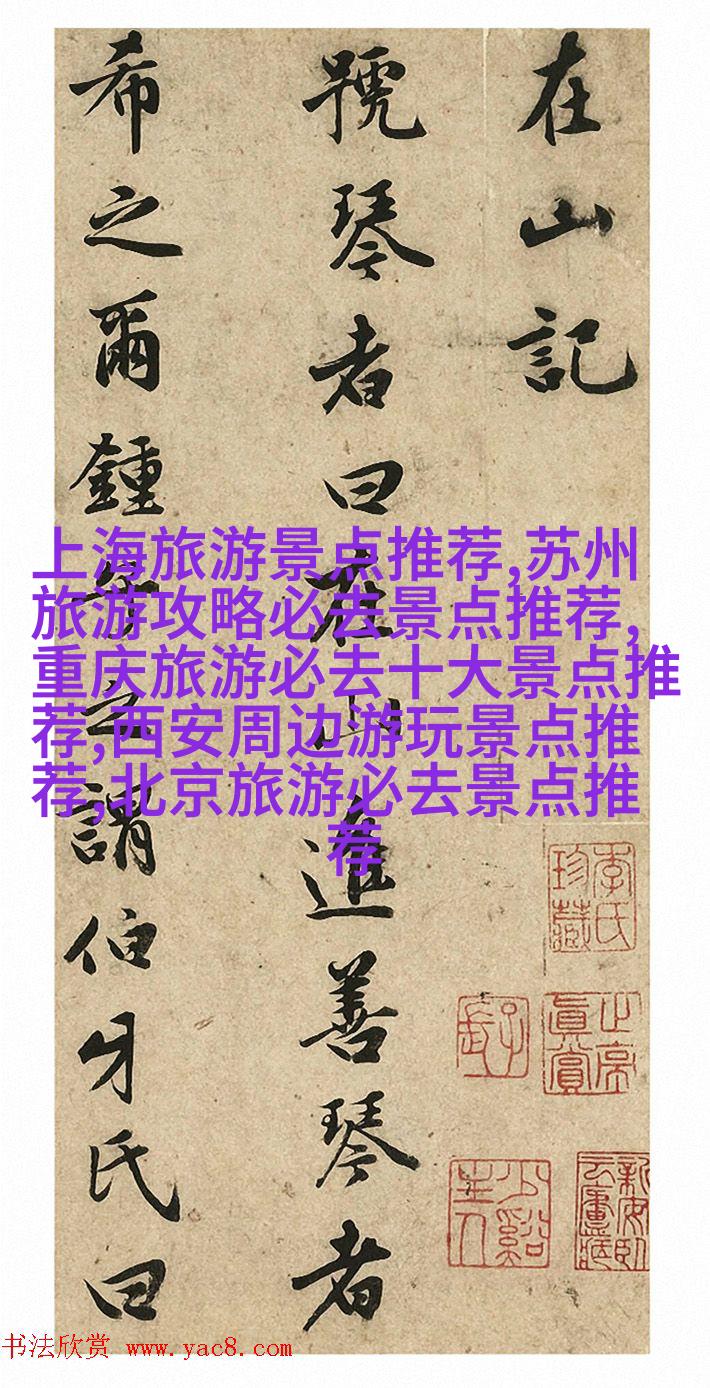 在山記
號琴者曰在山進善琴者
希之爾鍾之謂伯牙氏曰
上海旅游景点推荐,苏州
旅游攻略必去景点推荐,
重庆旅游必去十大景点推
荐,西安周边游玩景点推
荐,北京旅游必去景点推
荐
珍藏
真賞
少谿主人
书法欣赏 www.yac8.com